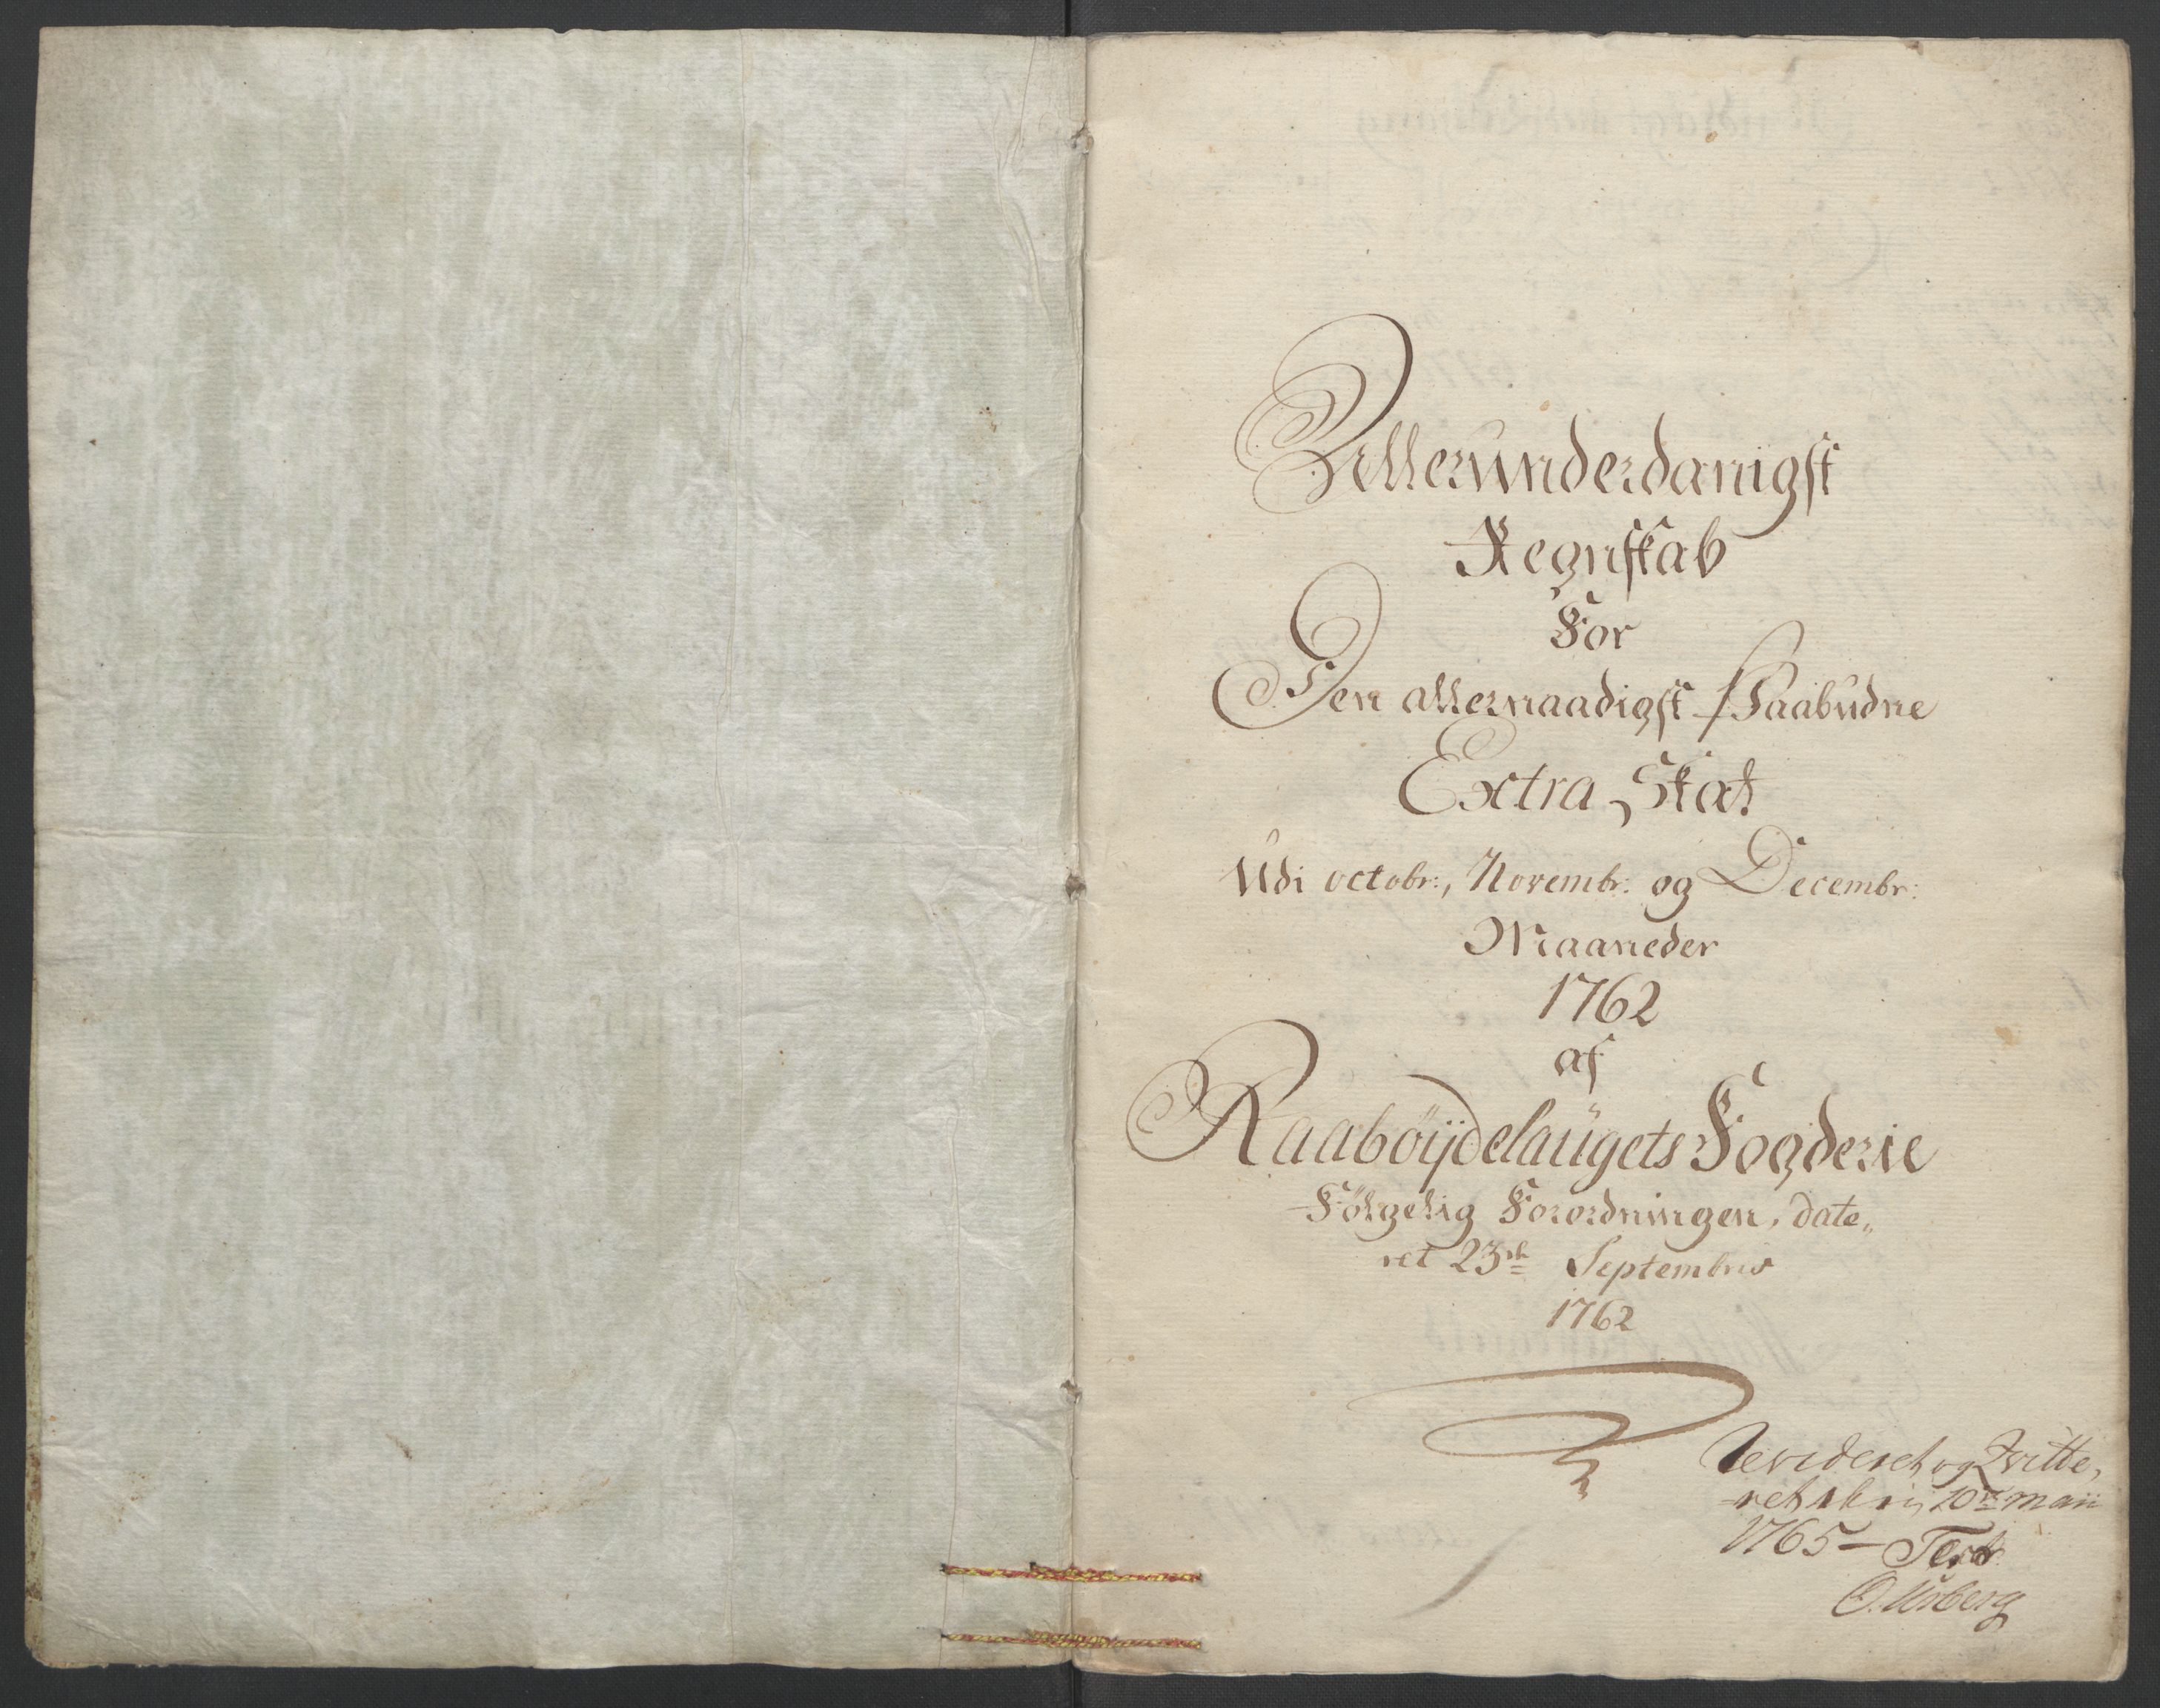 Allerunderdanigst
Regnskab
For
Den allernaadigst Paabudne
Extra Skat
Udi octobr:, Novembr: og Decembr:
Maaneder
1762
af
Raabøÿdelaugets Fogderie
Følgelig Forordningen, date„
ret 23de Septembris
1762
Revideret og Qvitte,
1765 – Test
O. Urberg